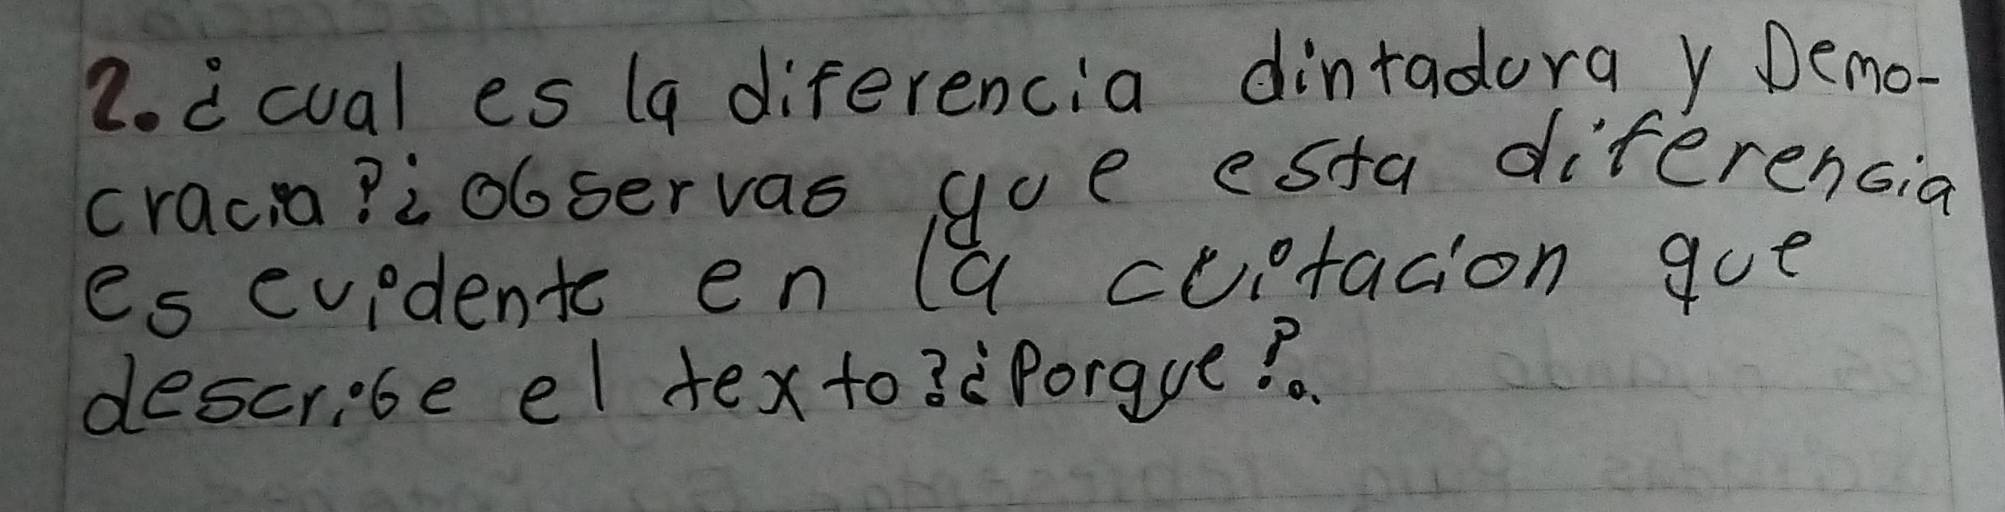 2. ¿cual es la diferencia dintadura y Demo-
cracia?¿observas que esta diferencia
es evidente en la cuitacion que
describe el texto?¿Porque?.